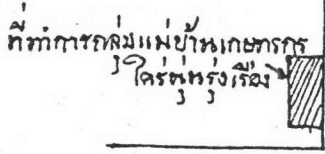 ที่ทำการกลุ่มแม่บ้านเกษตรกร
ใคร่นุ่นรุ่งเรือง